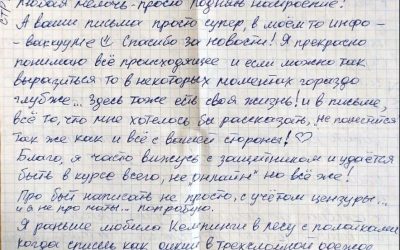 любая мелочь - просто поднять настроение!
А ваши письма просто супер, в моём то инфо-
-вакууме ☺ Спасибо за новости! Я прекрасно
понимаю всё происходящее и если можно так
выразиться то в некоторых моментах гораздо
глубже... Здесь тоже есть своя жизнь! и в письме,
всё то, что мне хотелось бы рассказать, не поместится
так же как и всё с вашей стороны! ♡
Благо, я часто вижусь с защитником и удаётся
быть в курсе всего, не онлайн* но всё же!
Про быт написать не просто, с учётом цензуры...
и а не про нары... попробую.
Я раньше любила Кемпинги в лесу с палатками
когда спишь как в трехслойной одежде